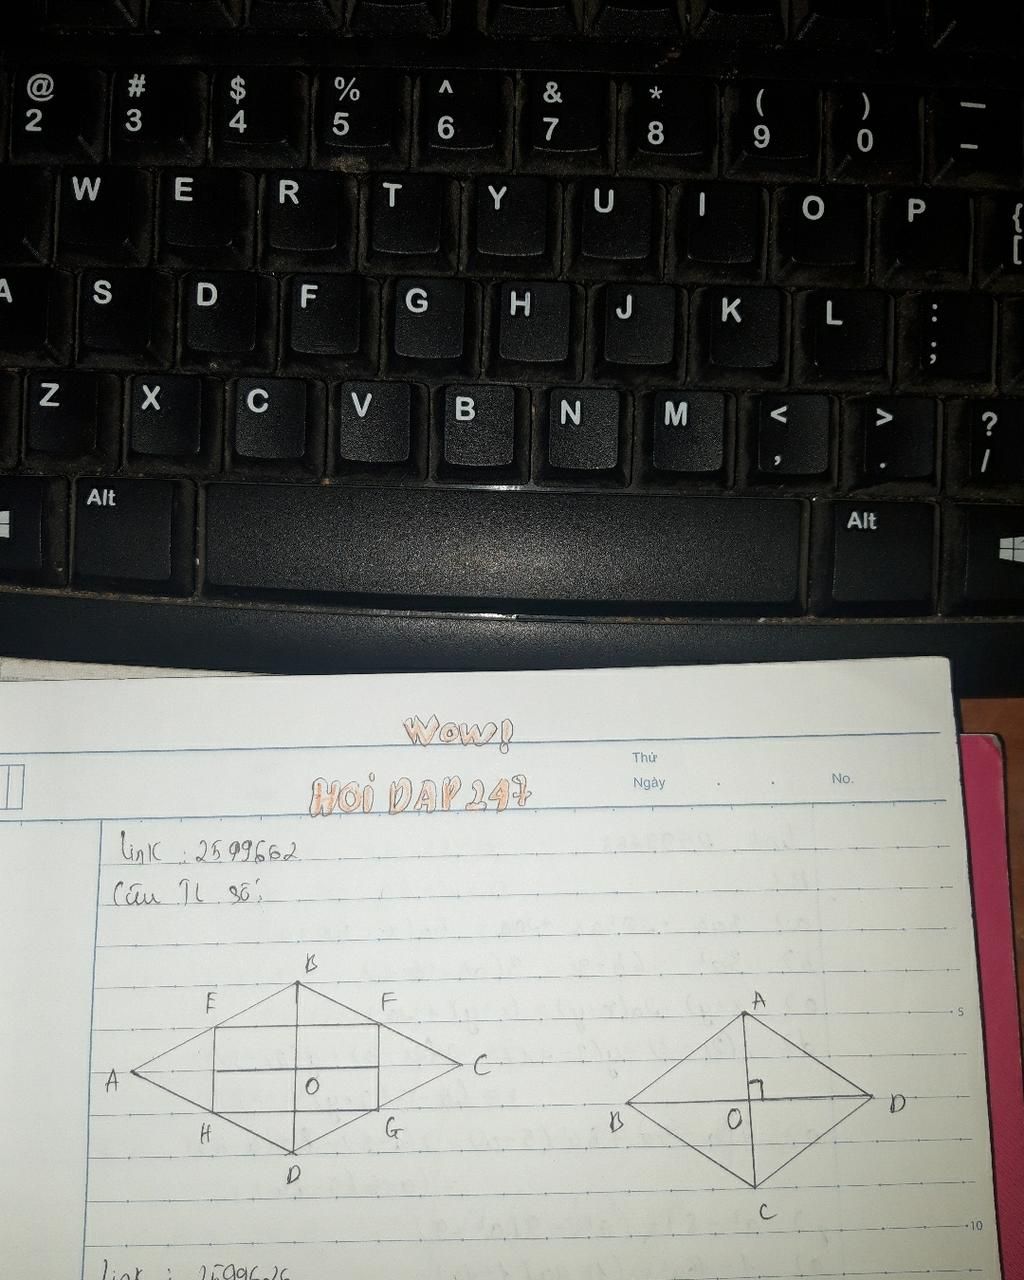 @ # $ % ^ & * ( ) —
2 3 4 5 6 7 8 9 0 -
W E R T Y U I O P {
[
A S D F G H J K L :
;
Z X C V B N M < > ?
, . /
Alt Alt
Wow!
HOI DAP 247
Thứ
Ngày . . No.
Link : 2599662
Câu TL số:
B
E F
A O C
H G
D
A
5
B O D
C
10
link : 2599626